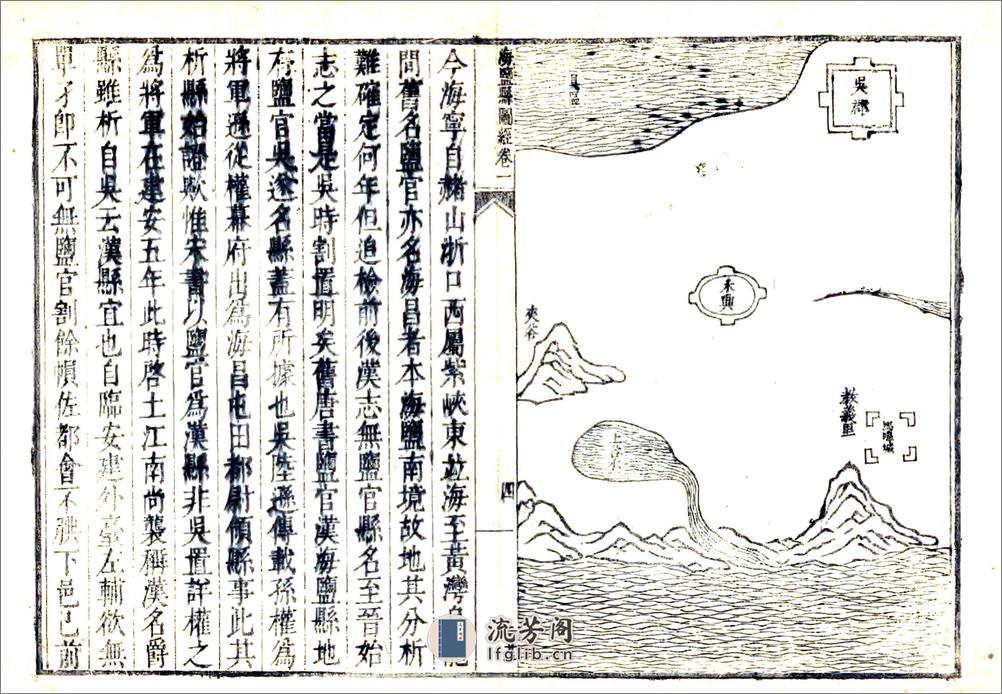 吳
永興
夾谷
上谷水
教義里
馬嘷城
海鹽縣圖經卷一
四
今海寧自赭山浙口西屬紫峽東並海至黃灣
問舊名鹽官亦名海昌者本海鹽南境故地其分析
難確定何年但追檢前後漢志無鹽官縣名至晉始
志之當是吳時割置明矣舊唐書鹽官漢海鹽縣地
有鹽官吳遂名縣蓋有所據也吳陸遜傳載孫權為
將軍遜從權幕府出為海昌屯田都尉領縣事此其
析縣始證歟惟宋書以鹽官為漢縣非吳置詳權之
為將軍在建安五年此時啓土江南尚襲稱漢名爵
縣雖析自吳云漢縣宜也自臨安建外臺左輔欲無
單孑即不可無鹽官割餘幀佐都會不下邑已前
流芳阁
lfglib.cn